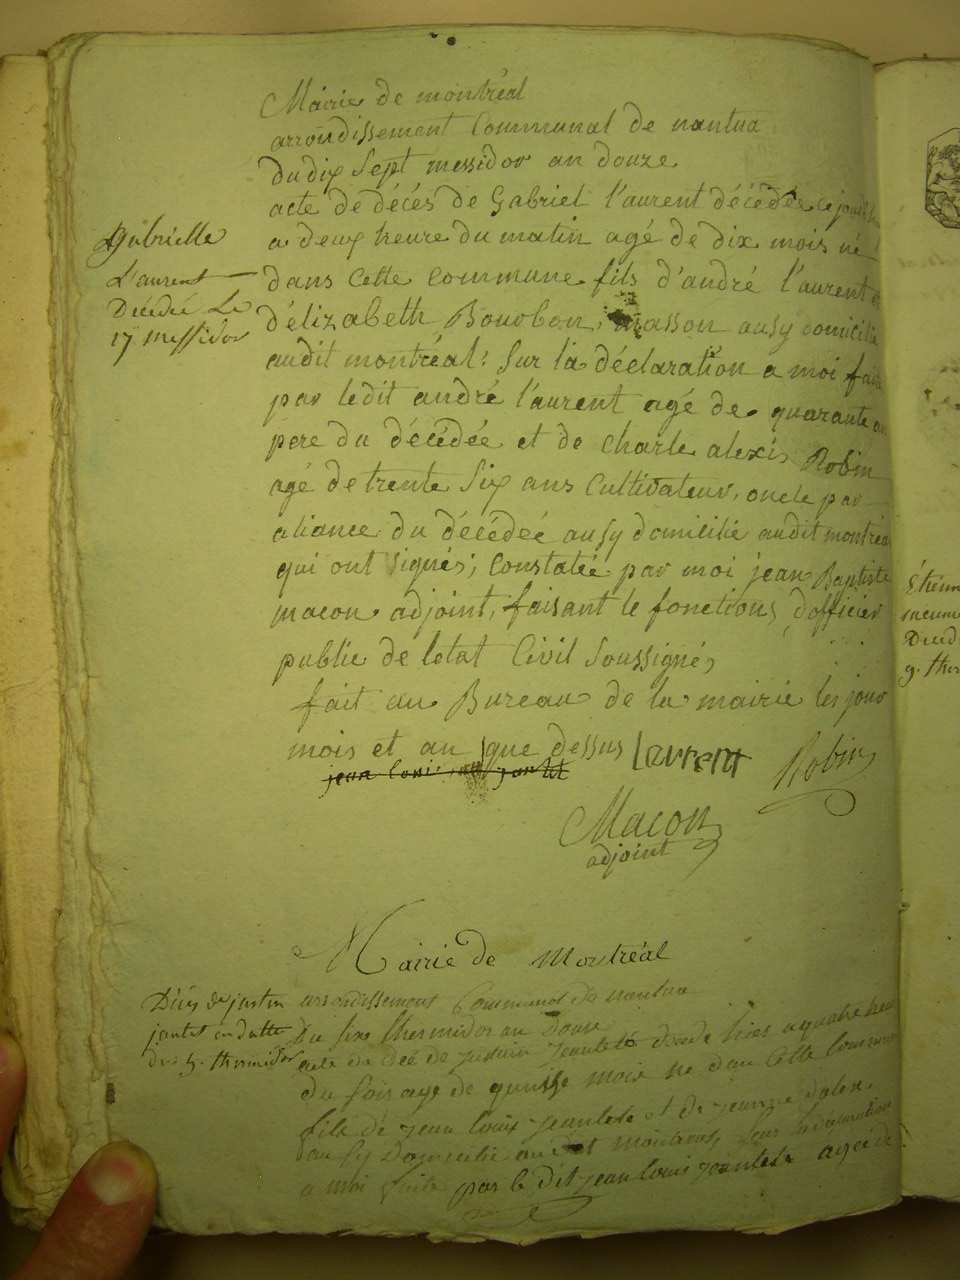 Mairie de montréal
arrondissement Communal de nantua
du dix Sept messidor an douze
acte de décés de Gabriel l'aurent décédée ce jour
a deux heure du matin agé de dix mois né
dans Cette Commune fils d'andré l'aurent et
d'élizabeth Bourbon, masson ausy domicilié
audit montréal: Sur la déclaration a moi faite
par ledit andré l'aurent agé de quarante
pere du décédée et de Charle alexis Robin
agé de trente Six ans Cultivateur, oncle par
aliance du décédeé ausy domicilié audit montréal
qui ont Signés; Constatée par moi jean Baptiste
macon adjoint, faisant le fonctions d'officier
public de letat Civil Soussignés
fait au Bureau de la mairie les jour
mois et an que dessus
Laurent
Robin
Macon
adjoint
gabrielle
L'aurent
Décédée Le
17 messidor
Mairie de Montréal
arrondissement Communal de nantua
du six thermidor an douze
acte de décé de justin jeantete décédé hier a quatre heure
du soir agé de quinsse mois né dans Cette Commune
fils de jean louix jeantete et de jeanne
ausy Domicilié audit montreal, sur la déclaration
a moi faite par le dit jean loui jeantete agée de
Décès de justin
jantet en datte
du 5. thermidor
Étienn
Décéd
9. ther